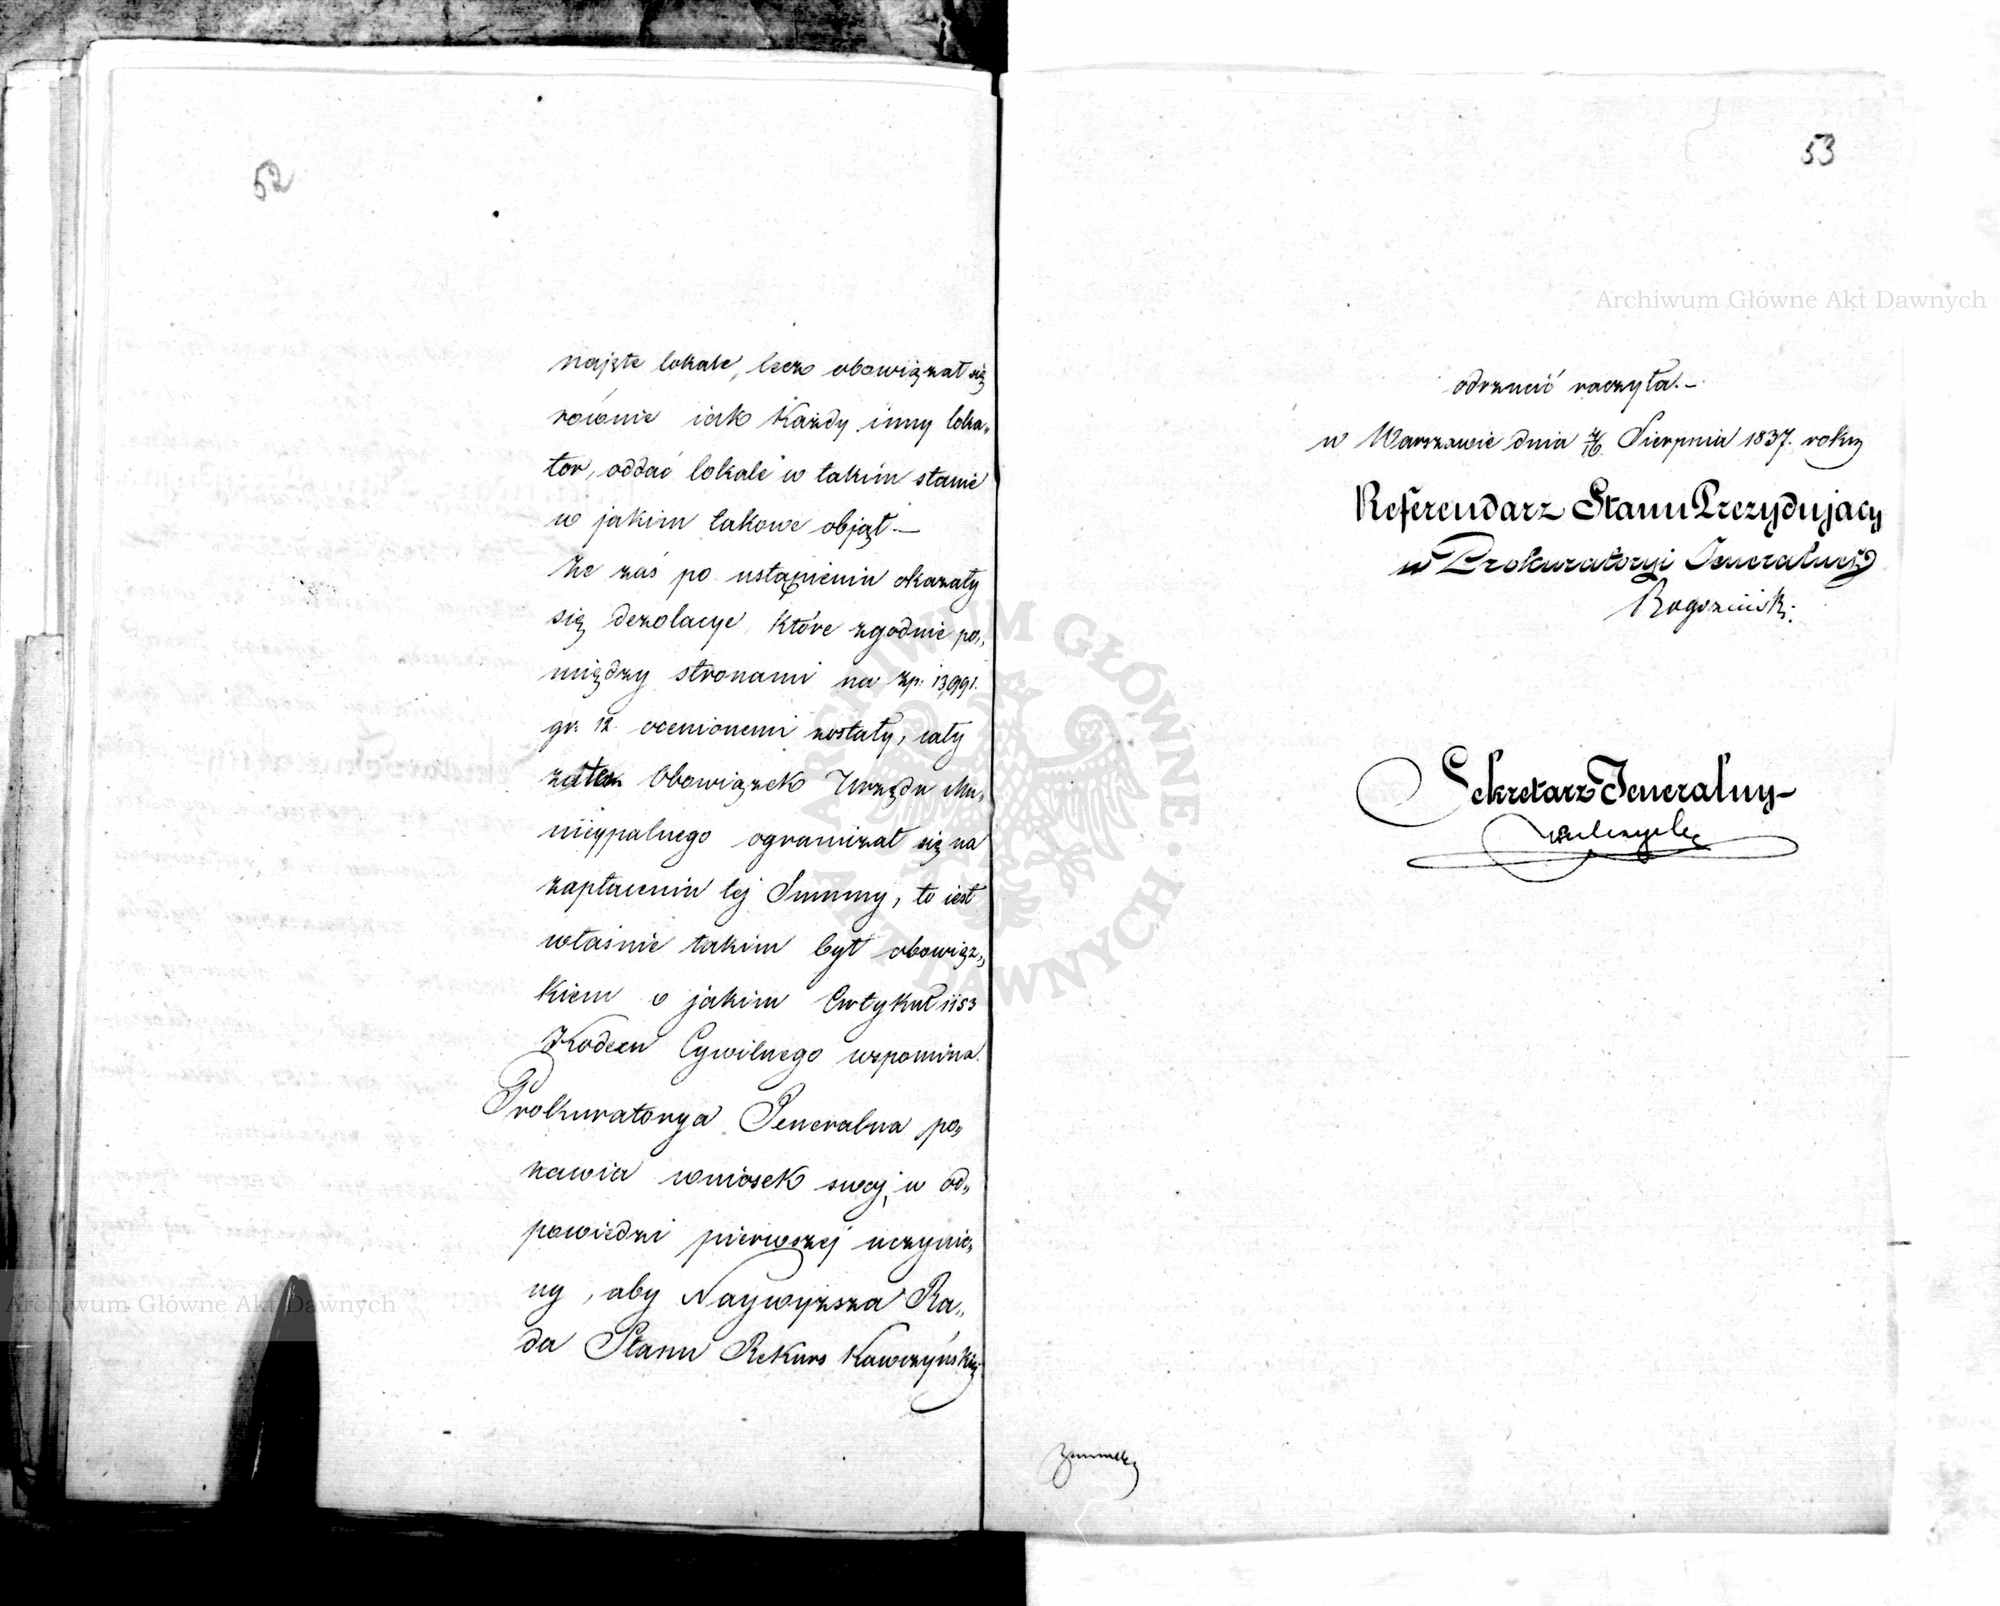 52
najęte lokale, lecz obowiązał się
równie iak każdy inny loka„
tor, oddać lokale w takim stanie
w jakim takowe objął.—
Że zaś po ustąpieniu okazały
się dezolacye które zgodnie po„
między stronami na zp. 13,991.
gr. 12. ocenionemi zostały, cały
zatem Obowiązek Urzędu Mu„
nicypalnego ograniczał się na
zapłaceniu tej Summy, to iest
właśnie takim był obowiąz„
kiem o jakim Artykuł 1153
Kodexu Cywilnego wspomina.
Prokuratorya Jeneralna po„
nawia wniosek swój, w od„
powiedzi pierwszej uczynio„
ny, aby Naywyższa Ra„
da Stanu Rekurs Kawczyńskiej
53
odrzucić raczyła.—
w Warszawie dnia 4/16 Sierpnia 1837. roku
Referendarz Stanu Prezydujący
w Prokuratoryi Jeneralnej
Rogoziński.
Sekretarz Jeneralny
Archiwum Główne Akt Dawnych
Archiwum Główne Akt Dawnych
ARCHIWUM GŁÓWNE AKT DAWNYCH